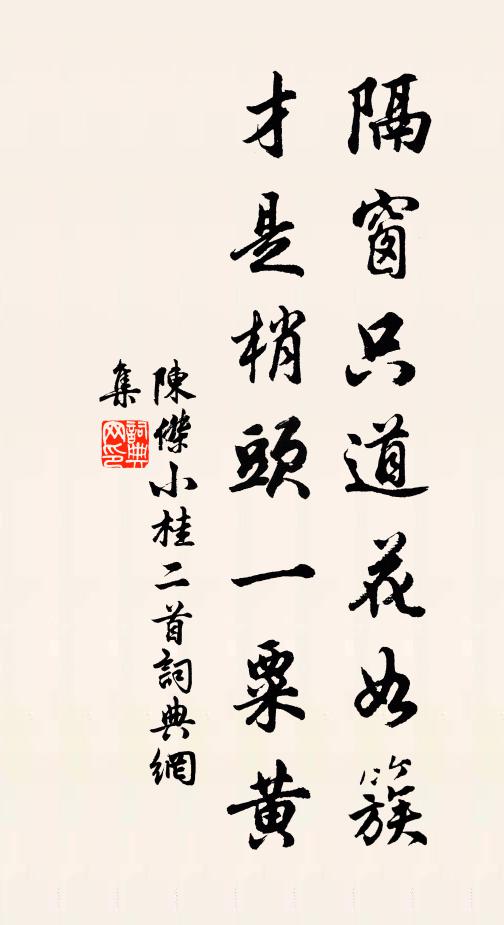 隔窗只道花如簇
才是梢頭一粟黃
陳傑小桂二首詞典網
集
詞典
网印